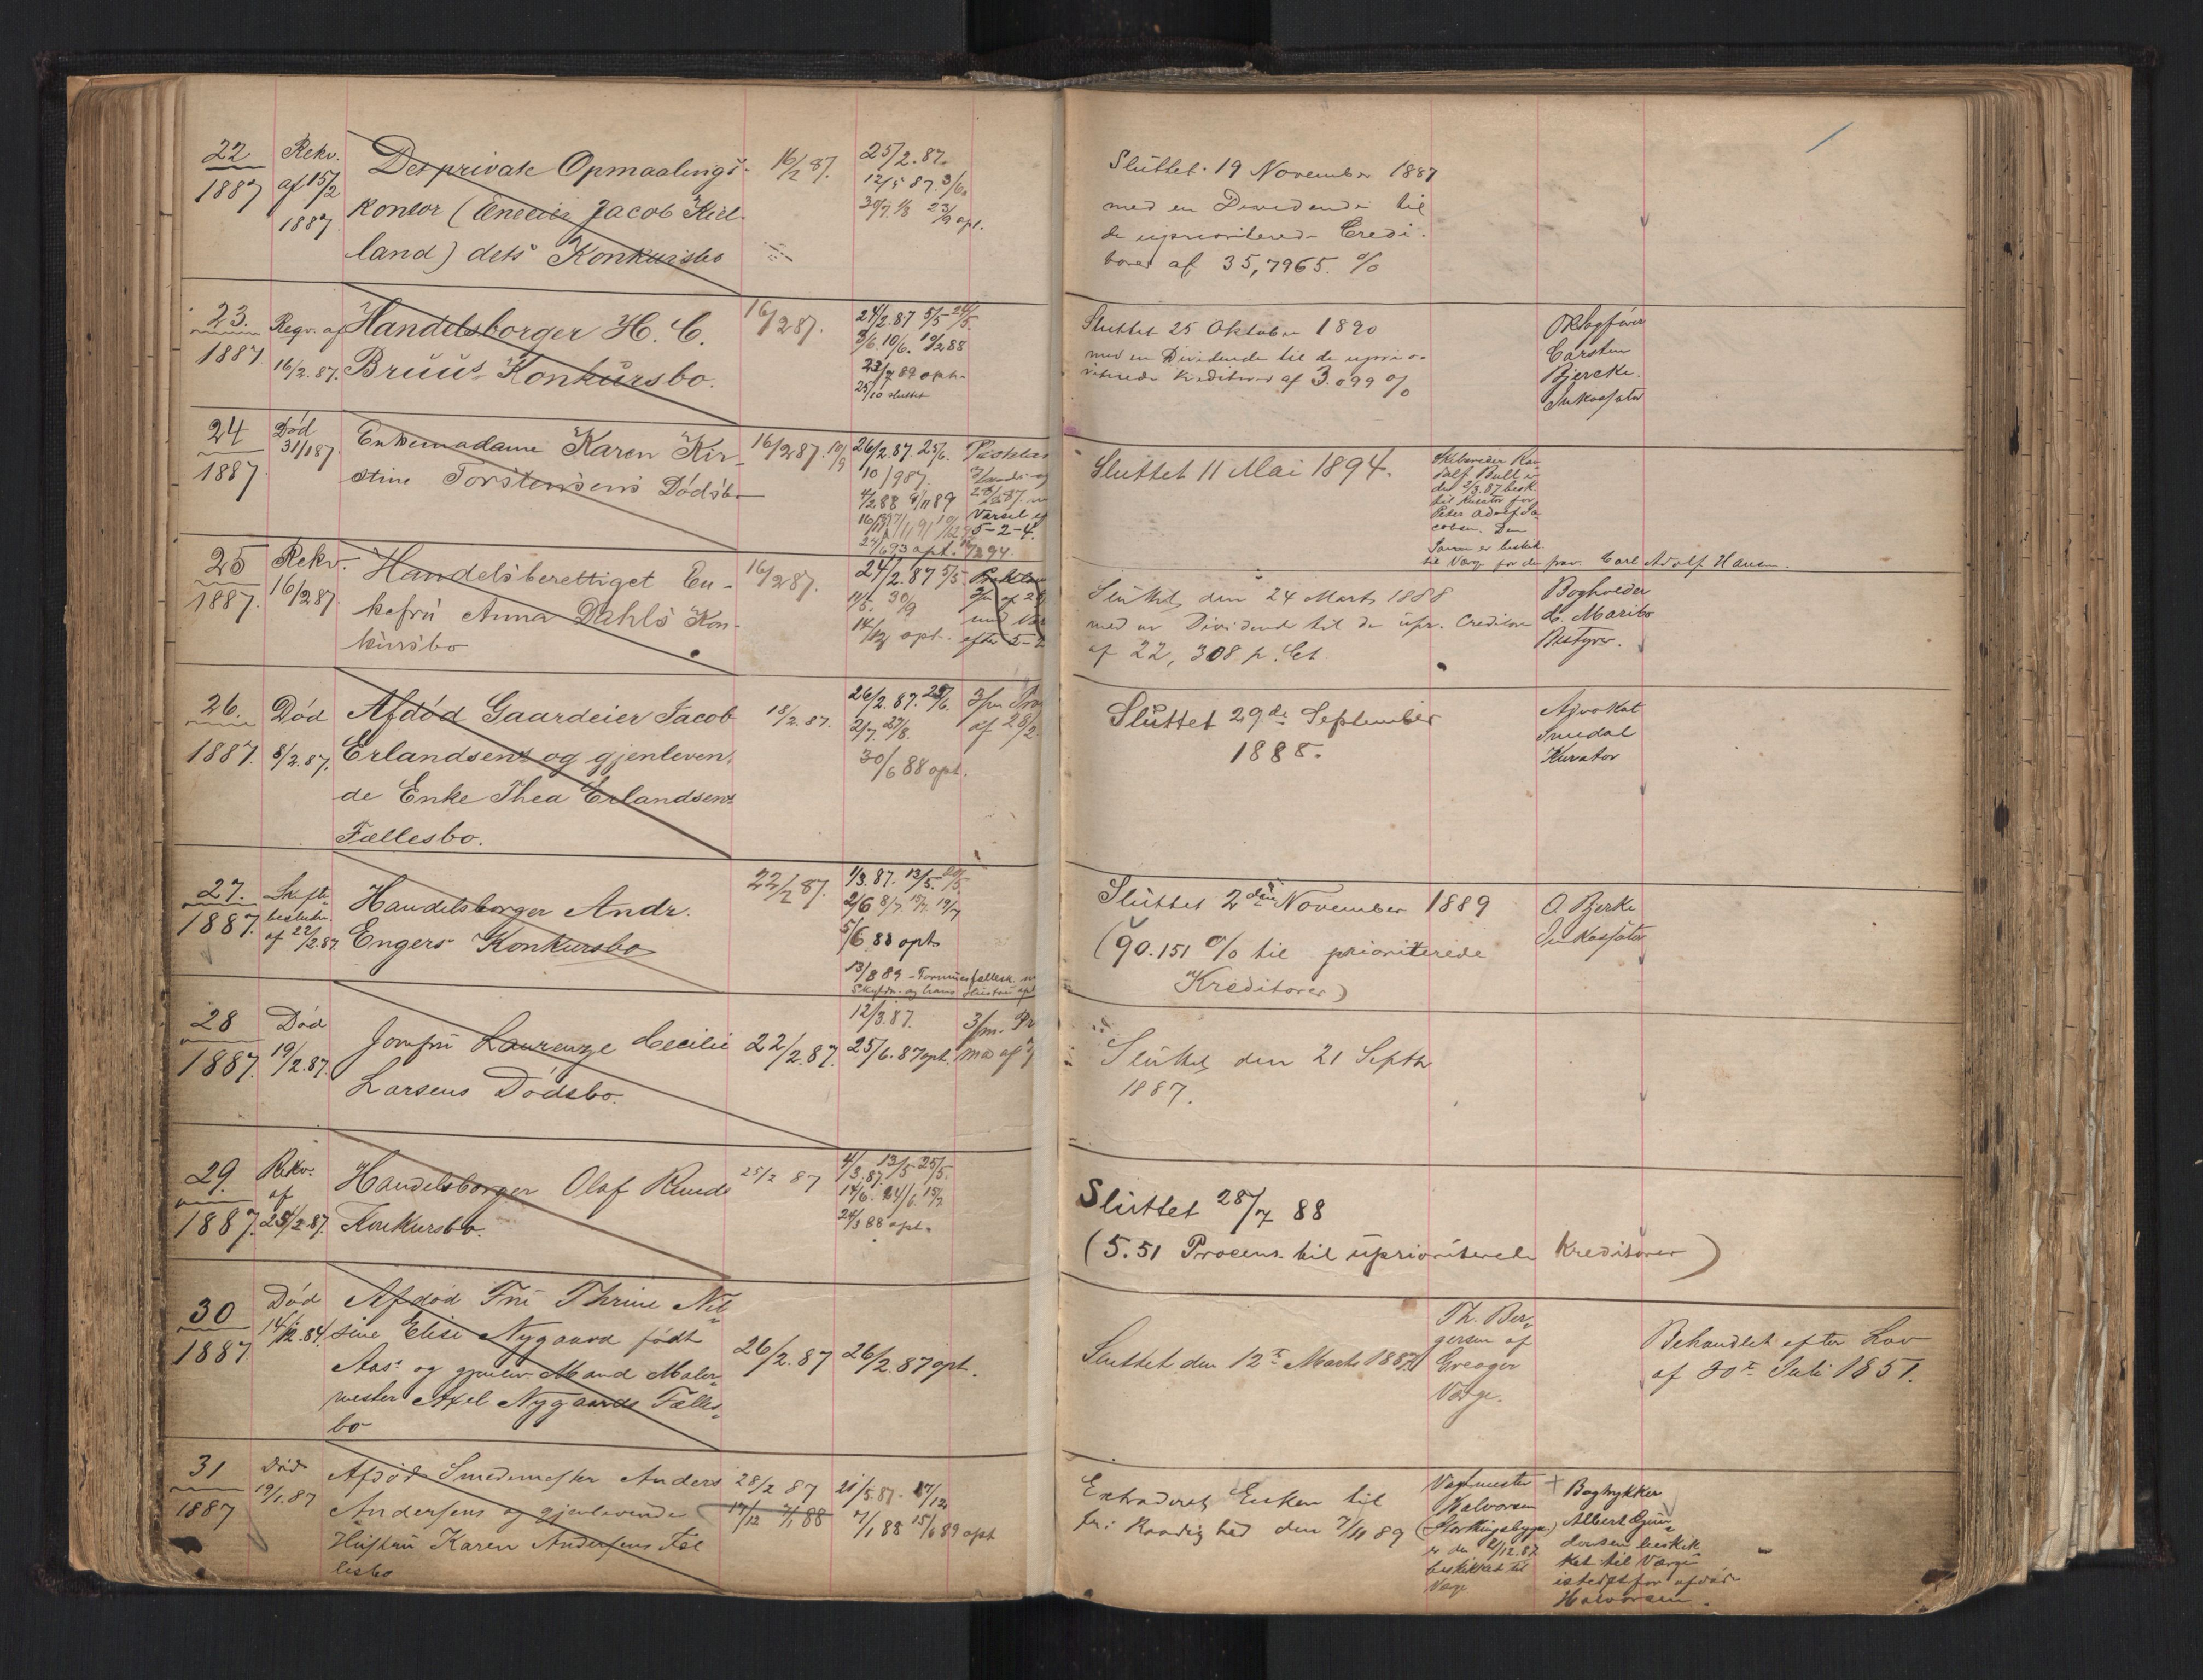 22
1887
Rekv.
af 15/2
1887
Det private Opmaalings-
kontor (Eneeier Jacob Kiel-
land) dets Konkursbo
16/2 87.
25/2.87.
12/5 87. 3/6.
opt.
Sluttet 19 November 1887
med en Dividende til
de uprioriterede Credi-
torer af 35,7965 %
23.
1887.
Reqv. af
16/2.87.
Handelsborger H. C.
Bruus Konkursbo.
16/2 87.
24/2.87 5/5 24/5.
3/6. 10/6. 10/2 88
opt.
25/10 sluttet
Sluttet 25 Oktober 1890
med en Dividende til de uprio-
riterede Kreditorer af 3.099 %
Carsten
Bjercke.
Inkassator
24
1887.
Død
31/1 87.
Enkemadame Karen Kir-
stine Torstensens Dødsb-
16/2 87.
26/2.87. 25/6.
10/9 87.
Varsel
5-2-4.
opt.
Sluttet 11 Mai 1894.
Bull er
den 2/3.87 besk.
til Kurator for
Peter Adolf Ja-
cobsen. Den
Samme er beskik.
til Værge for den frav. Carl Adolf Hansen.
25
1887.
Rekv.
16/2 87.
Handelsberettiget En-
kefru Anna Dahls Kon-
kursbo
16/2 87.
24/2.87 5/5
30/9
opt.
efter 5-2
Sluttet den 24 Marts 1888
med en Dividende til de upr. Creditorer
af 22,308 p. Ct.
Bogholder
C. Maribo
Bestyrer.
26.
1887.
Død
8/2.87.
Afdød Gaardeier Jacob
Erlandsens og gjenleven-
de Enke Thea Erlandsens
Fællesbo.
18/2.87.
26/2.87. 25/6.
2/7. 27/8.
30/6 88 opt.
3/m Pro
af 28/2
Sluttet 29de September
1888.
Advokat
Smedal
Kurator
27.
1887.
Skifte-
beslutn.
af 22/2.87.
Handelsborger Andr.
Engers Konkursbo
22/2 87.
1/3.87. 13/5.
2/6 8/7
5/6 88 opt.
13/8 89 - Formuesfællesk. m
Skyldn. og hans Hustru opt
Sluttet 2den November 1889
(90.151 % til prioriterede
Kreditorer)
O. Bjerke
Inkassator
28
1887.
Død
19/2.87.
Jomfru Laurenze Cecilie
Larsens Dødsbo.
22/2.87.
12/3.87.
25/6.87 opt.
3/m. Pr
Sluttet den 21 Septbr
1887.
29.
1887.
Rekv.
af
25/2.87.
Handelsborger Olaf Ruuds
Konkursbo.
25/2 87
4/3.87. 13/5 25/5.
14/6. 24/6.
24/3 88 opt.
Sluttet 28/7 88
(5.51 Procent til uprioriterede Kreditorer)
30
1887
Død
14/12.84.
Afdød Fru Thrine Nil-
sine Elise Nygaard født
Aas og gjenlev. Mand Maler-
mester Axel Nygaards Fælles-
bo
26/2.87
26/2.87 opt.
Sluttet den 12te Marts 1887
Th. Ber-
gersen af
Værge.
Behandlet efter Lov
af 30te Juli 1851.
31
1887
Død
19/1.87
Afdød Smedemester Anders
Andersens og gjenlevende
Hustru Karen Andersens Fæl
lesbo
28/2 87
17/12 7/1 88
21/5.87. 17/12
7/1 88 15/6 89 opt
Extraderet Enken til
fri Raadighed den 7/11 89
Vagtmester
Halvorsen
(Storthingsbygn.)
er den 2/12.87
beskikket til
Værge
+ Bogtrykker
Albert Gjun-
dersen beskik
ket til Værge
istedetfor afdøde
Halvorsen.